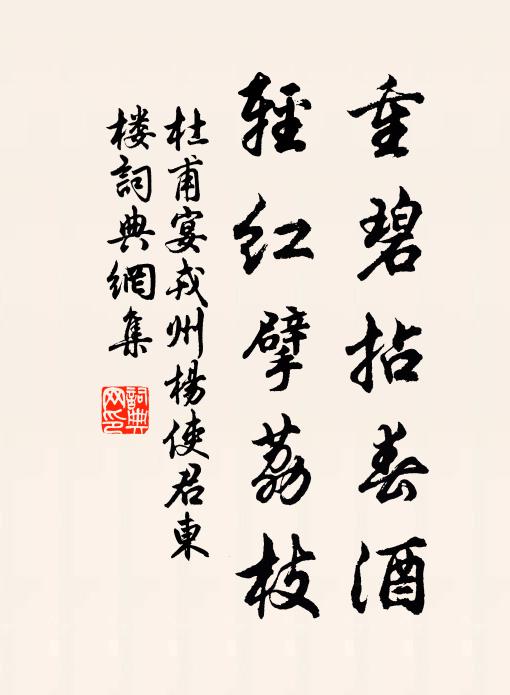 重碧拈春酒
輕紅擘荔枝
杜甫宴戎州楊使君東
樓詞典網集
詞典网印